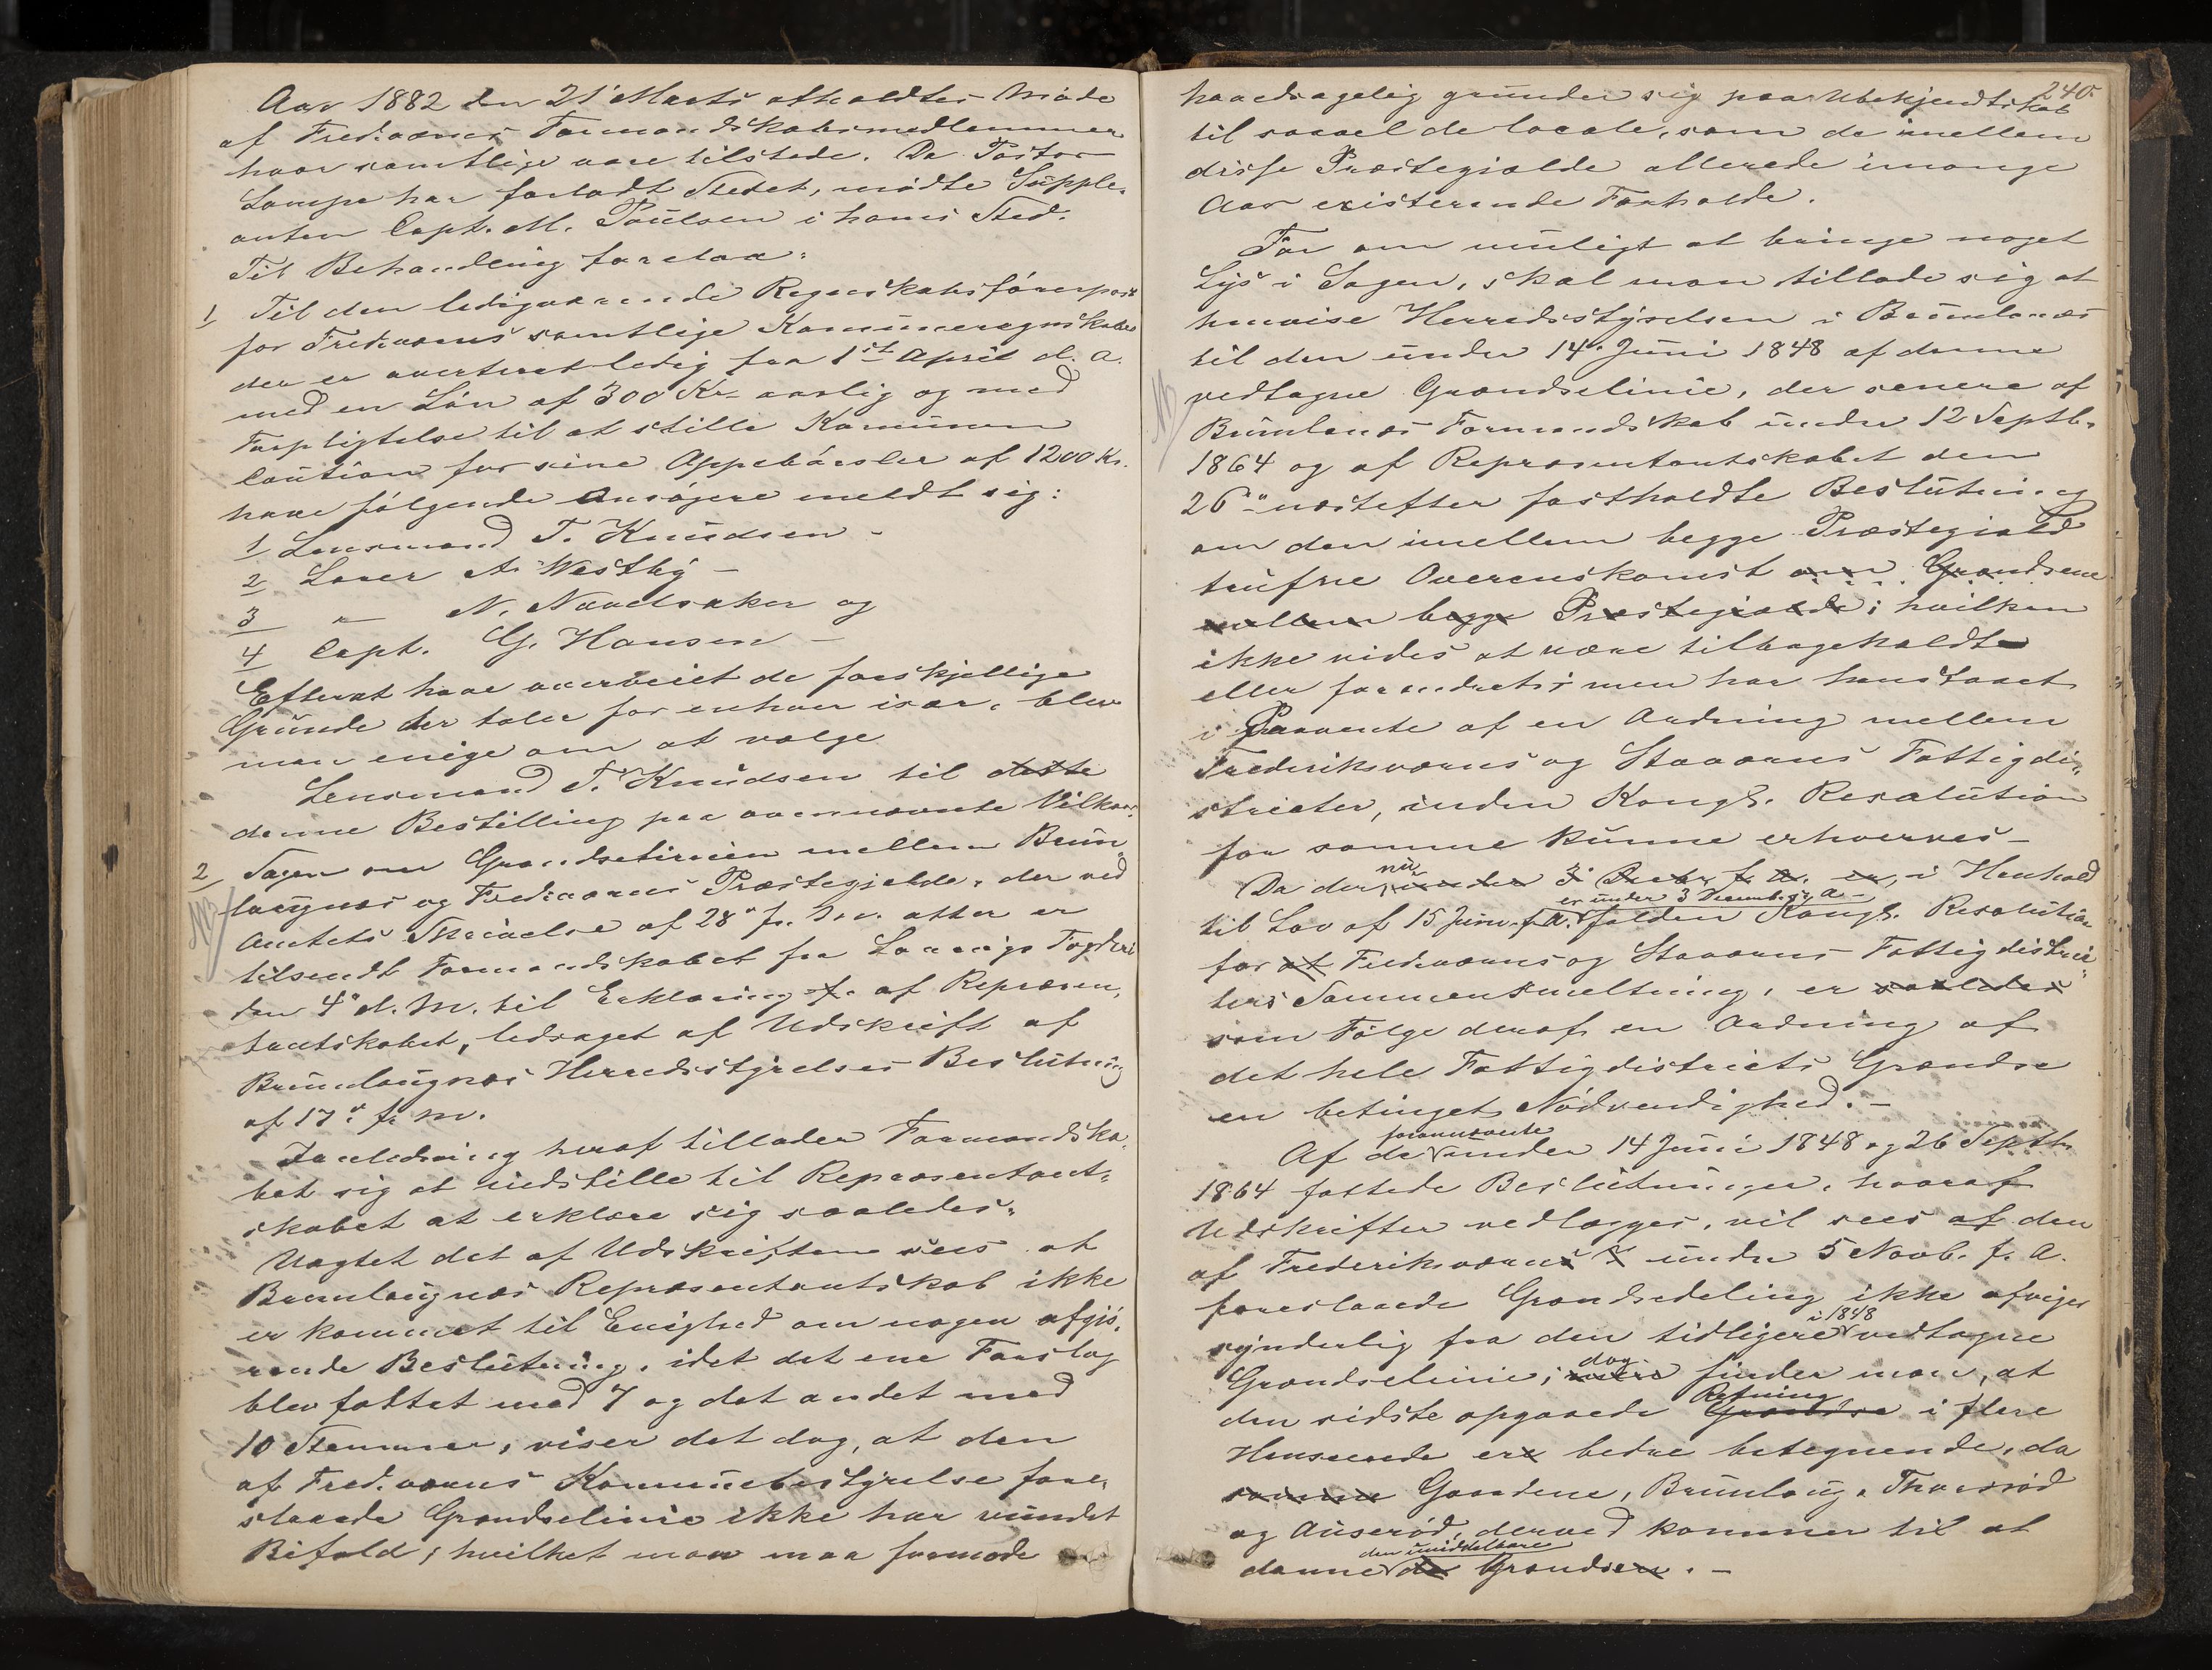 Aar 1882 den 21' Marts atholdtes Møde
af Fredr.værns Formandskabsmedlemmer
hvor samtlige vare tilstede. Da Pastor
Lampe har forladt Stedet, mødte Supple„
anten Capt. M. Paulsen i hans Sted.
Til Behandling forelaa:
1/ Til den ledigværende Regnskabsførerpost
for Fredr.værns samtlige Kommuneregnskaber
der er averteret ledig fra 1st April d. A.
med en Løn af 300 Kr aarlig og med
Forpligtelse til at stille Kommunen
Caution for sine Oppebørsler af 1200 Kr.
have følgende Ansøgere meldt sig:
1/ Lensmand T. Knudsen -
2/ Lærer A. Westby -
3/ " N. Navelsaker og
4/ Capt. G. Hansen -
Efterat have overveiet de forskjellige
Grunde der taler for enhver især, blev
man enige om at vælge
Lensmand T. Knudsen til dette
denne Bestilling paa ovennævnte Vilkaar.
2/ Sagen om Grændselinien mellem Brun„
NB laugnæs og Fredr.værns Præstegjelde, der ved
Amtets Skrivelse af 28" f. M. atter er
tilsendt Formandskabet fra Laurvigs Fogderi
den 4" d. M. til Erklæring f. af Repræsen„
tantskabet, ledsaget af Udskrift af
Brunlaugnæs Herredsstyrelses Beslutning
af 17" f. M.
I Anledning heraf tillader Formandska„
bet sig at indstille til Repræsentant„
skabet at erklære sig saaledes:
Uagtet det af Udskriften sees at
Brunlaugnæs Repræsentantskab ikke
er kommet til Enighed om nogen afgjø„
rende Beslutning, idet det ene Forslag
blev fattet med 7 og det andet med
10 Stemmer, viser det dog, at den
af Fred.værns Kommunebestyrelse fore„
slaaede Grændselinie ikke har vundet
Bifald; hvilket man maa formode
240.
hovedsagelig grunder sig paa Ubekjendtskab
til saavel de locale, som de imellem
disse Præstegjælde allerede i mange
Aar existerende Forholde.
For om muligt at bringe noget
Lys i Sagen, skal man tillade sig at
henvise Herredsstyrelsen i Brunlanæs
til den under 14' Juni 1848 af denne
NB vedtagne Grændselinie, der senere af
Brunlanæs Formandskab under 12 Septb.
1864 og af Repræsentantskabet den
26" næstefter fastholdte Beslutning
om den imellem begge Præstegjæld
trufne Overenskomst om Grændserne
mellem begge Præstegjælde; hvilken
ikke vides at være tilbagekaldt
eller forandret; men har henstaaet
i Paavente af en Ordning mellem
Frederiksværns og Staværns Fattigdi„
stricter, inden Kongl. Resolution
for samme kunne erhverves -
Da der nu under 3' Decbr f. A. er, i Henhold
til Lov af 15 Juni f. A. er under 3 Decemb. f. A. falden Kongl. Resolution
for at Fredr.værns og Staværns Fattigdistric„
ters Sammensmeltning, er saaledes
som Følge deraf en Ordning af
det hele Fattigdistricts Grændse
en betinget Nødvendighed. -
Af de forannævnte under 14 Juni 1848 og 26 Septb.
1864 fattede Beslutninger, hvoraf
Udskrifter vedlægges, vil sees af den
af Frederiksværns K under 5 Novb. f. A.
foreslaaede Grændsedeling ikke afviger
synderlig fra den tidligere i 1848 vedtagne
Grændselinie; men dog finder man, at
den sidste opgaaede Grændse Retning i flere
Henseende er bedre betegnende, da
samme Gaardene, Brunlaug, Thorsrød
og Auserød, derved kommer til at
danne de den umiddelbare Grændsen. -